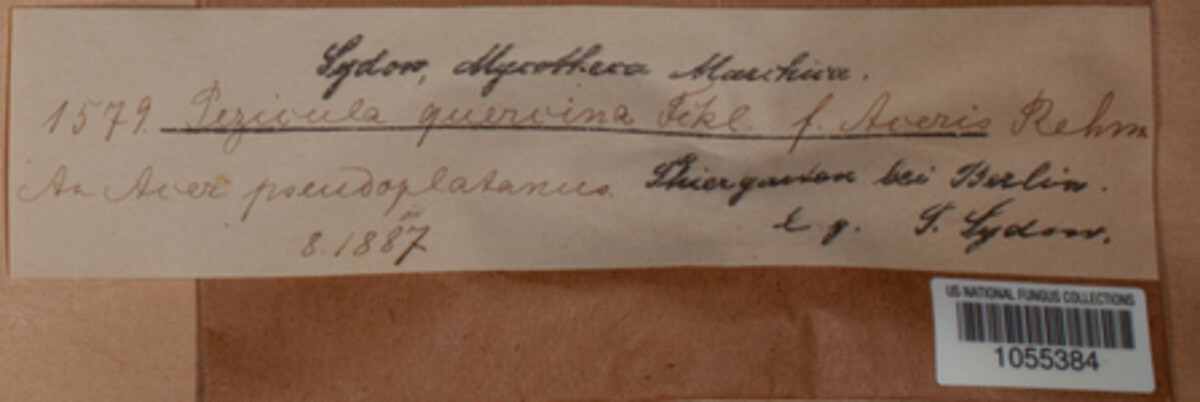 Sydow, Mycotheca Marchica.
1579. Pezicula quercina Fckl. f. Aceris Rehm
An Acer pseudoplatanus. Thiergarten bei Berlin.
8. 1887 leg. P. Sydow.
US NATIONAL FUNGUS COLLECTIONS
1055384